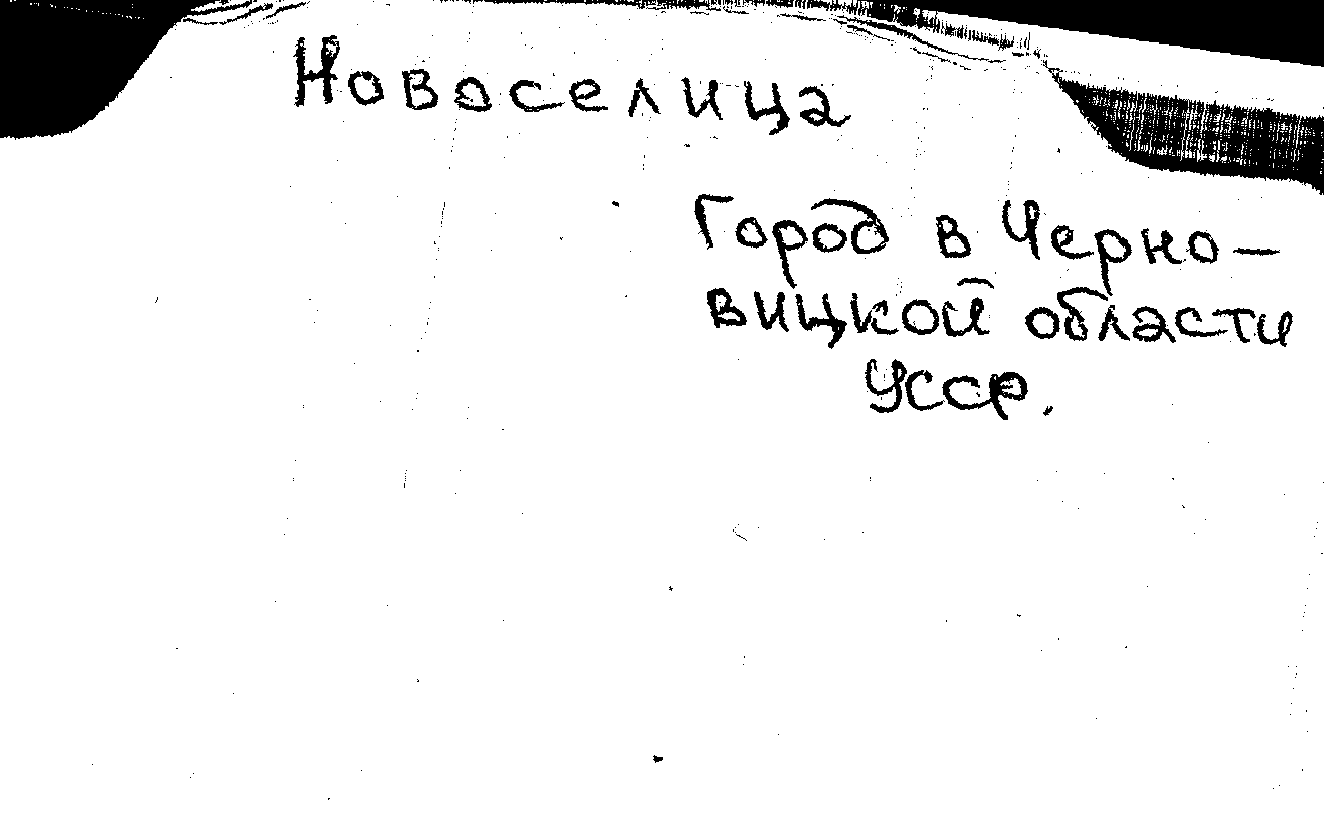 Новоселица
Город в Черно-
вицкой области
УССР.